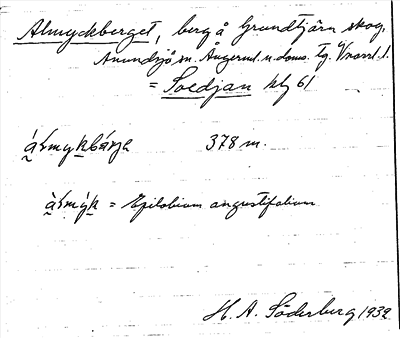 Almyckberget, berg å Grundtjärn skog,
Anundsjö sn. Ångerml. n. doms. Tg. V:norrl. l.
= Soedjan kbl 61
378 m.
= Epilobium angustifolium
H. A. Söderberg 1932